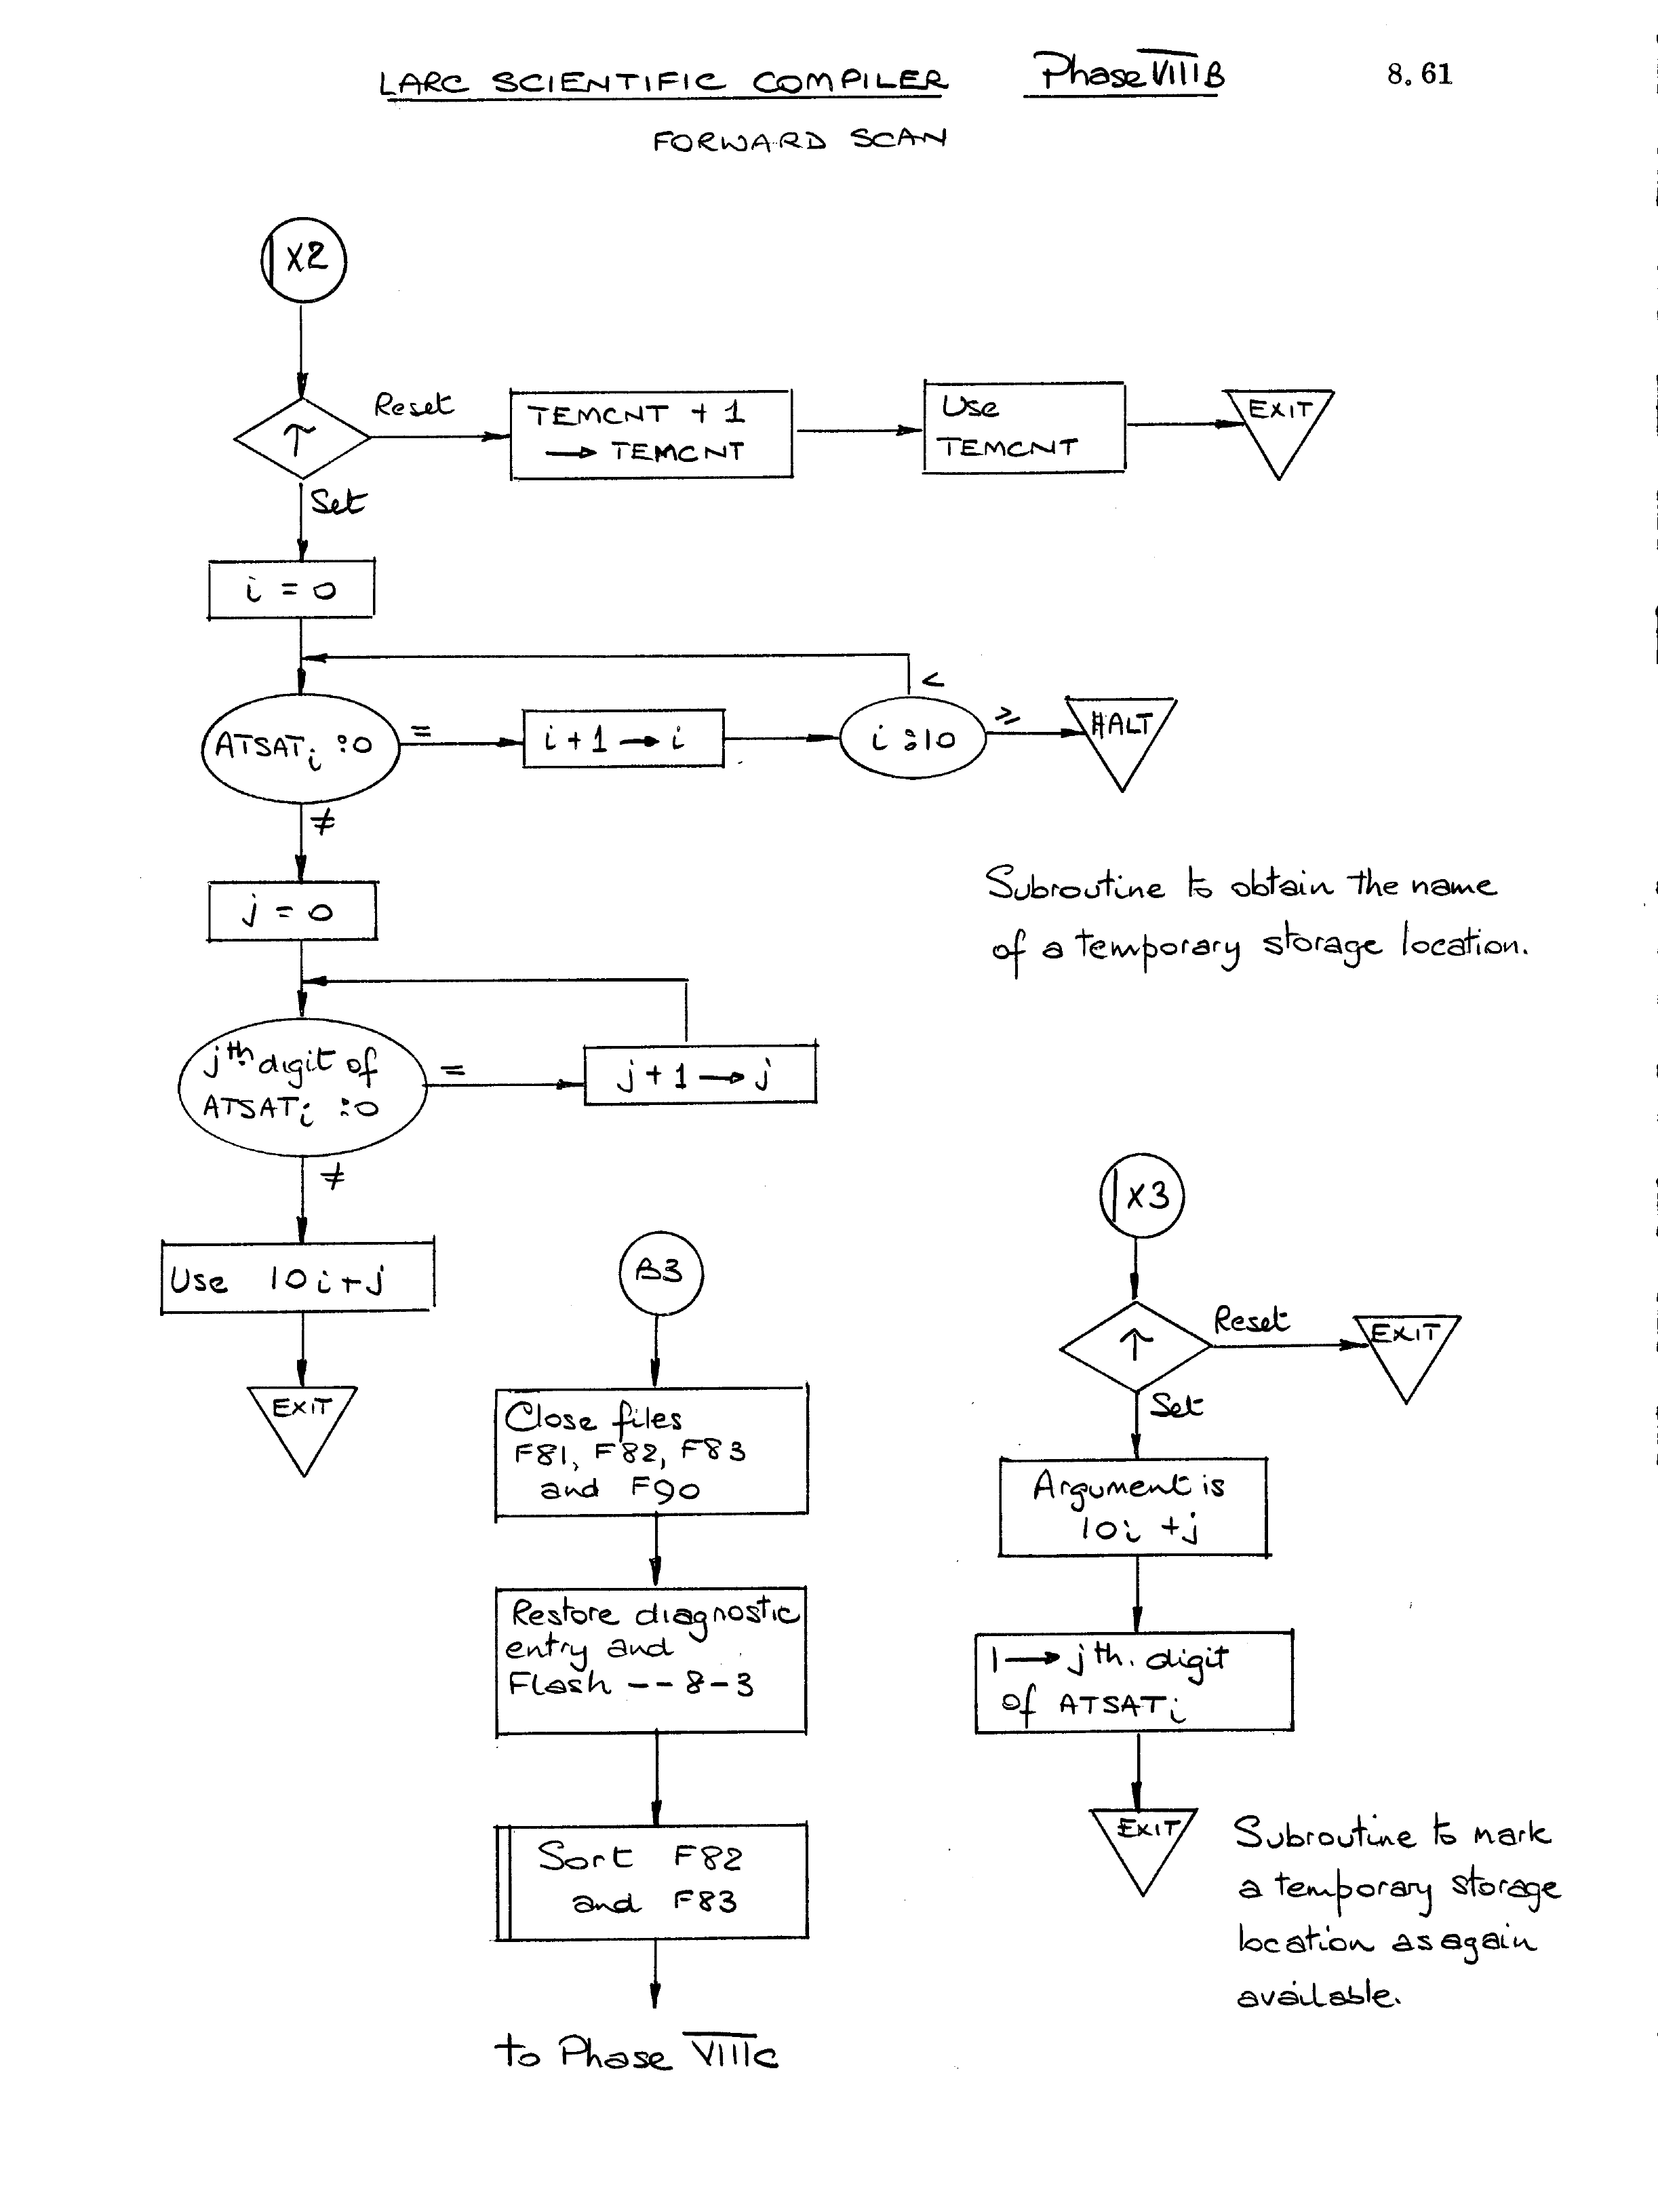 LARC SCIENTIFIC COMPILER Phase VIIIB 8.61
FORWARD SCAN
X2
↑
Reset
TEMCNT + 1
→ TEMCNT
Use
TEMCNT
EXIT
Set
i = 0
ATSATi : 0
=
i + 1 → i
i : 10
<
≥
HALT
≠
j = 0
jth digit of
ATSATi : 0
=
j + 1 → j
≠
Use 10i + j
EXIT
Subroutine to obtain the name
of a temporary storage location.
B3
Close files
F81, F82, F83
and F90
Restore diagnostic
entry and
Flash -- 8-3
Sort F82
and F83
to Phase VIIIC
X3
↑
Reset
EXIT
Set
Argument is
10i + j
1 → jth. digit
of ATSATi
EXIT
Subroutine to mark
a temporary storage
location as again
available.